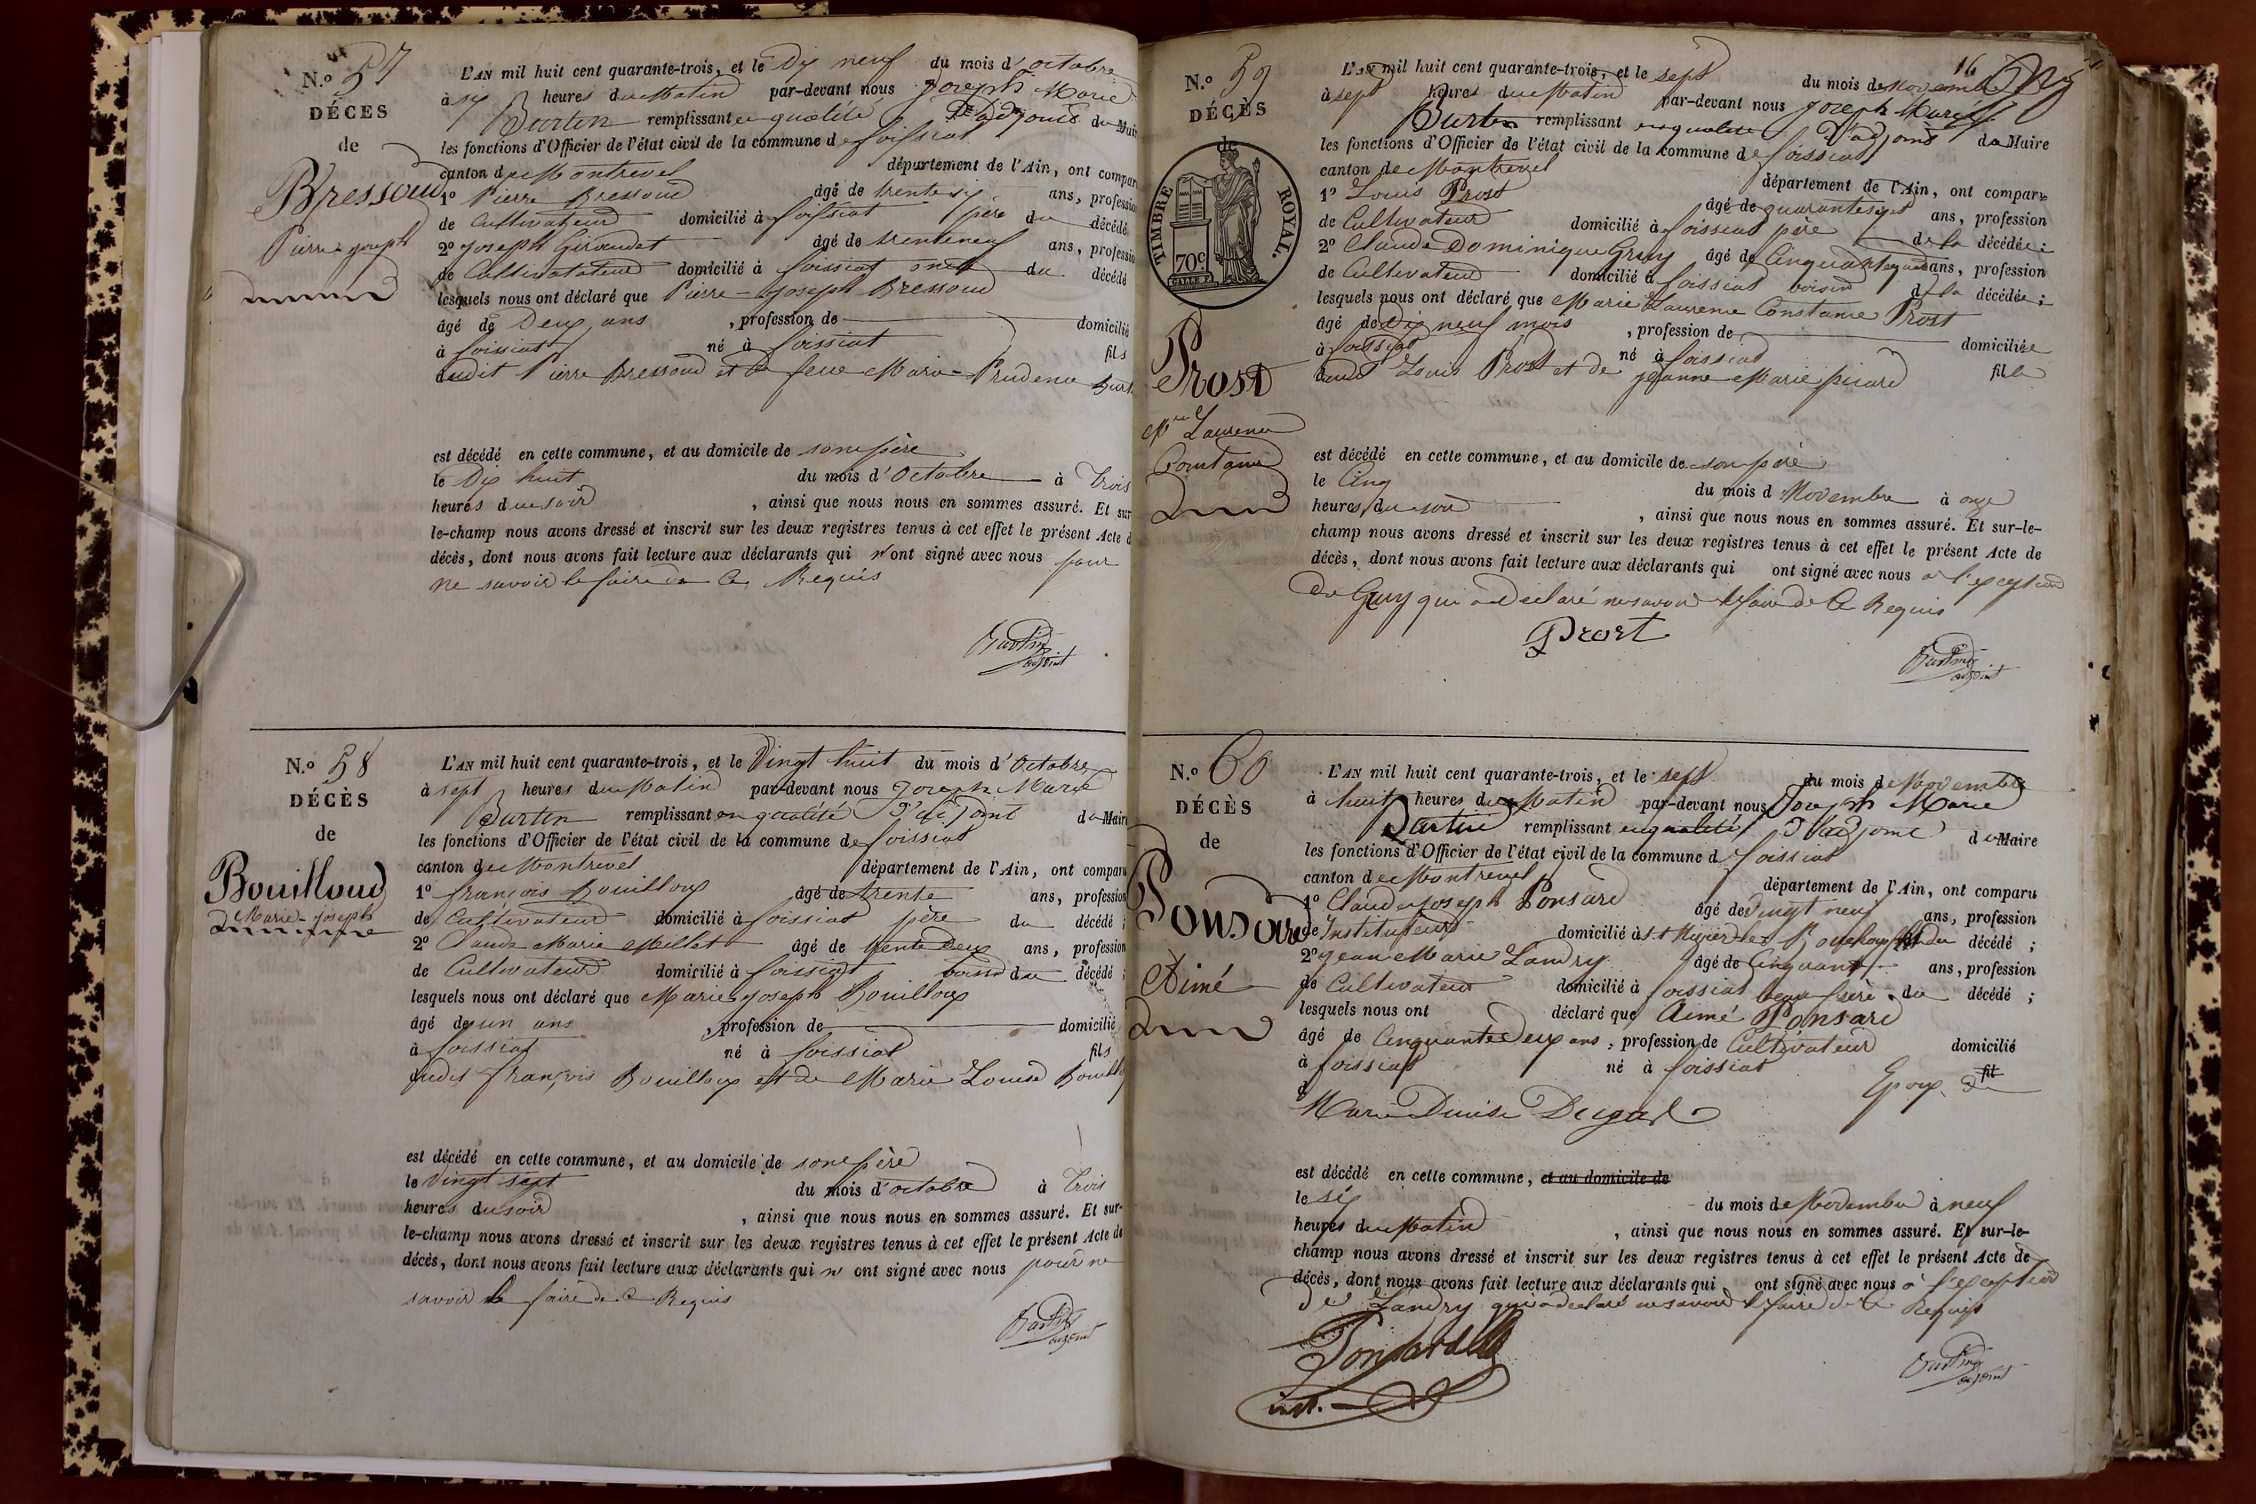 N.º 57
DÉCES
de
Bressoud
Pierre-joseph
L'AN mil huit cent quarante-trois, et le Dix neuf du mois d'octobre
à six heures du Matin par-devant nous Joseph Marie
Burtin remplissant en qualité D'adjoint du Mair
les fonctions d'Officier de l'état civil de la commune de foissiat
canton de Montrevel département de l'Ain, ont compar
1º Pierre Bressoud âgé de trente six ans, profession
de Cultivateur domicilié à foissiat père du décédé
2º joseph Giraudet âgé de trente neuf ans, profession
de Cultivatateur domicilié à foissiat du décédé
lesquels nous ont déclaré que Pierre-joseph Bressoud
âgé de Deux ans , profession de domicilié
à foissiat né à foissiat fils
dudit Pierre Bressoud et de feue Marie-Prudence Burt
est décédé en cette commune, et au domicile de son père
le Dix huit du mois d'Octobre à trois
heures du soir , ainsi que nous nous en sommes assuré. Et sur
le-champ nous avons dressé et inscrit sur les deux registres tenus à cet effet le présent Acte d
décès, dont nous avons fait lecture aux déclarants qui n'ont signé avec nous pour
ne savoir le faire de ce Requis
Burtin
adjoint
N.º 58
DÉCÈS
de
Bouilloud
Marie-joseph
L'AN mil huit cent quarante-trois, et le Vingt huit du mois d'Octobre
à sept heures du Matin par-devant nous Joseph Marie
Burtin remplissant en qualité D'adjoint du Maire
les fonctions d'Officier de l'état civil de la commune de foissiat
canton de Montrevel département de l'Ain, ont comparu
1º françois Bouilloux âgé de trente ans, profession
de Cultivateur domicilié à foissiat père du décédé ;
2º Claude Marie Millet âgé de trente Deux ans, profession
de Cultivateur domicilié à foissiat voisin du décédé ;
lesquels nous ont déclaré que Marie-joseph Bouilloux
âgé de un ans , profession de domicilié
à foissiat né à foissiat fils
dudit françois Bouilloux et de Marie Louise
est décédé en cette commune, et au domicile de son père
le Vingt sept du mois d'octobre à Trois
heures du soir , ainsi que nous nous en sommes assuré. Et sur-
le-champ nous avons dressé et inscrit sur les deux registres tenus à cet effet le présent Acte de
décès, dont nous avons fait lecture aux déclarants qui n'ont signé avec nous pour ne
savoir le faire de ce Requis
Burtin
adjoint
16
N.º 59
DÉCÈS
de
TIMBRE ROYAL.
70 c
Prost
Mie Laurence
Constance
L'AN mil huit cent quarante-trois, et le sept du mois de Novembre
à sept heures du Matin par-devant nous Joseph Marie
Burtin remplissant en qualité D'adjoint du Maire
les fonctions d'Officier de l'état civil de la commune de foissiat
canton de Montrevel département de l'Ain, ont comparu
1º Louis Prost âgé de quarante sept ans, profession
de Cultivateur domicilié à foissiat père de la décédée ;
2º Claude Dominique Guy âgé de Cinquante quatre ans, profession
de Cultivateur domicilié à foissiat voisin de la décédée ;
lesquels nous ont déclaré que Marie Laurence Constance Prost
âgé de Dix neuf mois , profession de domiciliée
à foissiat né à foissiat fille
dudit Louis Prost et de jeanne Marie picard
est décédé en cette commune, et au domicile de son père
le Cinq du mois d Novembre à onze
heures du soir , ainsi que nous nous en sommes assuré. Et sur-le-
champ nous avons dressé et inscrit sur les deux registres tenus à cet effet le présent Acte de
décès, dont nous avons fait lecture aux déclarants qui ont signé avec nous à l'exception
de Guy qui a déclaré ne savoir le faire de ce Requis
Prost
Burtin
adjoint
N.º 60
DÉCÈS
de
Ponsard
Aimé
L'AN mil huit cent quarante-trois, et le sept du mois de Novembre
à huit heures du Matin par-devant nous Joseph Marie
Burtin remplissant en qualité D'adjoint du Maire
les fonctions d'Officier de l'état civil de la commune de foissiat
canton de Montrevel département de l'Ain, ont comparu
1º Claude joseph Ponsard âgé de Vingt neuf ans, profession
de Instituteur domicilié à St du décédé ;
2º jean Marie Landry âgé de Cinquante ans, profession
de Cultivateur domicilié à foissiat beau frère du décédé ;
lesquels nous ont déclaré que Aimé Ponsard
âgé de Cinquante Deux ans , profession de Cultivateur domicilié
à foissiat né à foissiat fil
d Epoux de
Marie Denise Dugad
est décédé en cette commune, et au domicile de
le six du mois de Novembre à neuf
heures du Matin , ainsi que nous nous en sommes assuré. Et sur-le-
champ nous avons dressé et inscrit sur les deux registres tenus à cet effet le présent Acte de
décès, dont nous avons fait lecture aux déclarants qui ont signé avec nous à l'exception
de Landry qui a déclaré ne savoir le faire de ce Requis
Ponsard
inst.
Burtin
adjoint